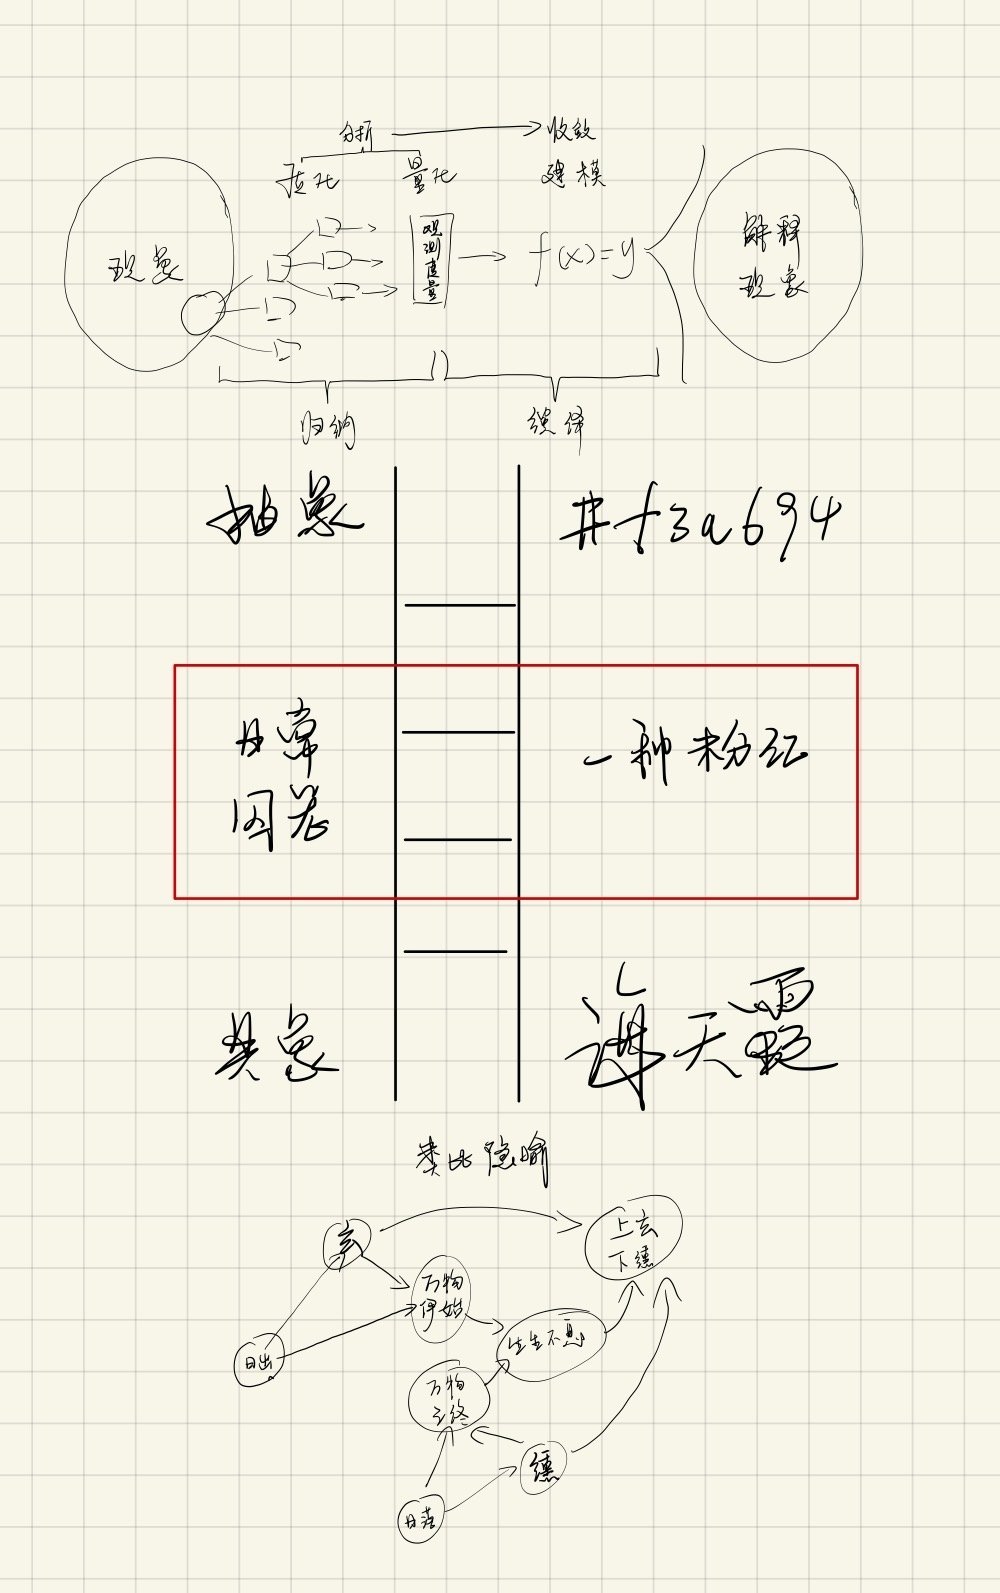 分析
收敛
质化 量化
建模
现象
观测度量
f(x)=y
解释
现象
归纳
演绎
抽象
#f3a694
日常
困惑
一种粉红
具象
海天霞
类比隐喻
玄
上玄
下纁
万物
伊始
生生不息
日出
万物
之终
纁
日落